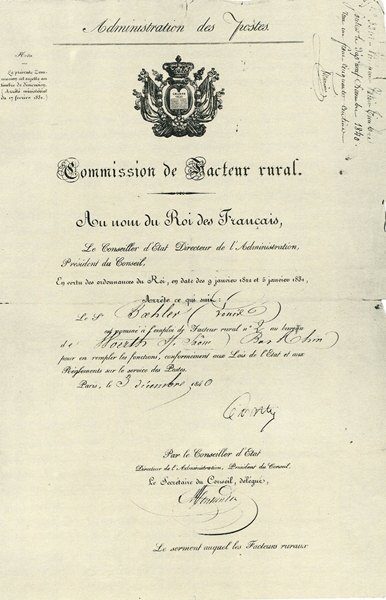 Administration des Postes.
Nota
La présente Com-
mission est sujette au
timbre de dimension.
Arrêté ministériel
du 17 février 1831.
Commission de Facteur rural.
Au nom du Roi des Français,
Le Conseiller d'Etat Directeur de l'Administration,
Président du Conseil,
En vertu des ordonnances du Roi, en date des 9 janvier 1822 et 5 janvier 1831,
Arrête ce qui suit:
Le Sr Bahler (Louis)
est nommé à l'emploi de Facteur rural no 2 au bureau
de Woerth (Bas Rhin)
pour en remplir les fonctions, conformément aux Lois de l'Etat et aux
Règlements sur le service des Postes.
Paris, le 3 décembre 1840
Par le Conseiller d'Etat
Directeur de l'Administration, Président du Conseil.
Le Secrétaire du Conseil, délégué,
Le serment auquel les Facteurs ruraux